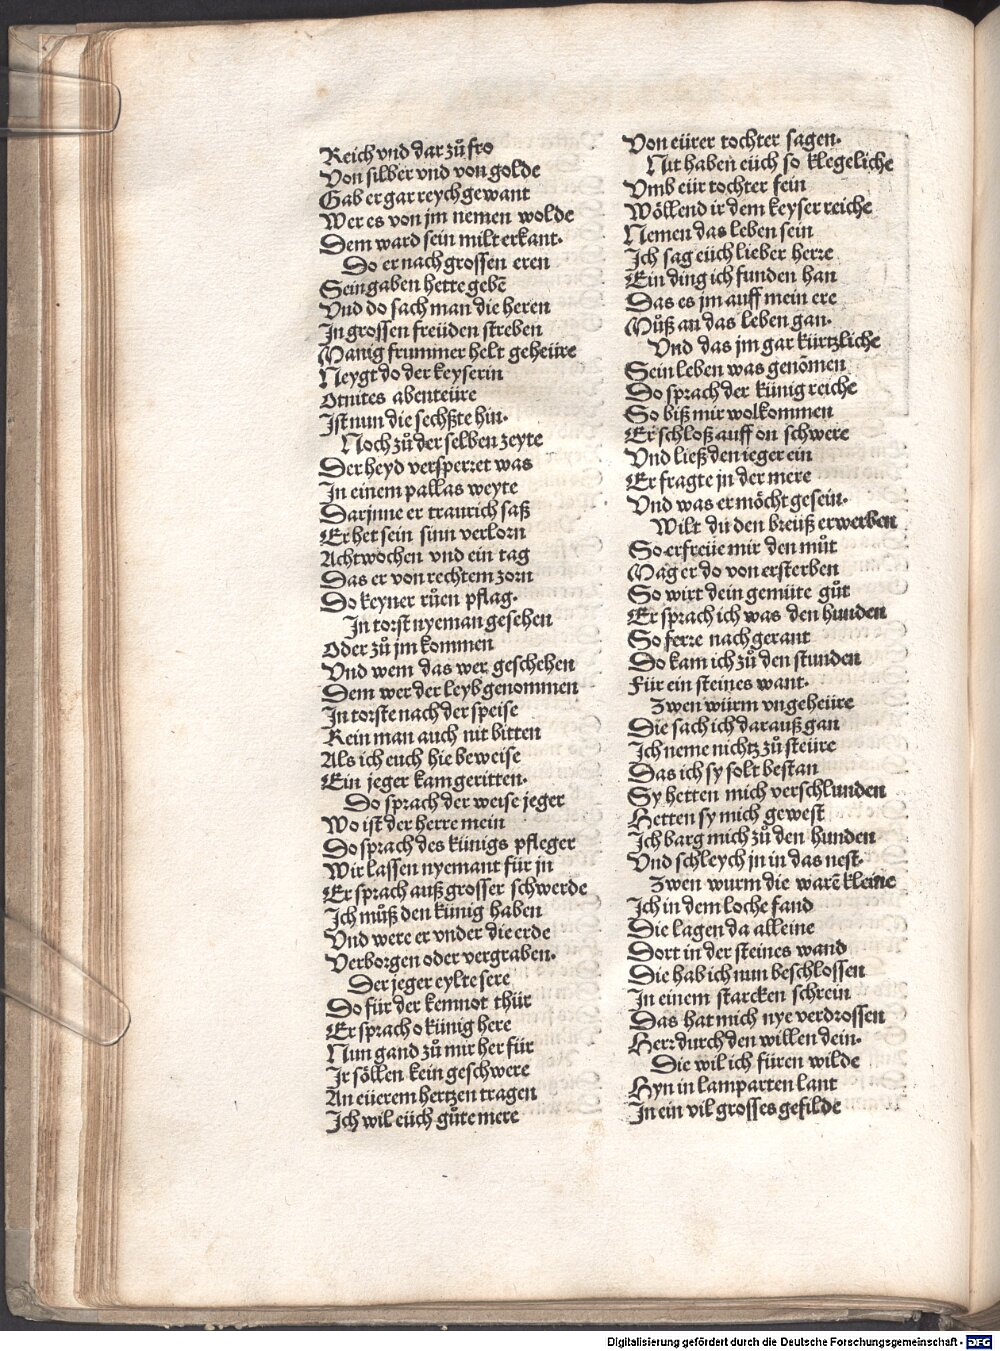 Reich vnd dar zů fro
Von silber vnd von golde
Gab er gar reych gewant
Wer es von jm nemen wolde
Dem ward sein milt erkant.
Do er nach grossen eren
Sein gaben hette gebē
Vnd do sach man die heren
In grossen freüden streben
Manig frummer helt geheüre
Neygt do der keyserin
Otnites abenteüre
Ist nun die sechßte hin.
Noch zů der selben zeyte
Der heyd versperret was
In einem pallas weyte
Darjnne er traurich saß
Er het sein sinn verlorn
Achtwochen vnd ein tag
Das er von rechtem zorn
Do keyner růen pflag.
In torst nyeman gesehen
Oder zů jm kommen
Vnd wem das wer geschehen
Dem wer der leyb genommen
In torste nach der speise
Kein man auch nit bitten
Als ich euch hie beweise
Ein jeger kam geritten.
Do sprach der weise jeger
Wo ist der herre mein
Do sprach des künigs pfleger
Wir lassen nyemant für jn
Er sprach auß grosser schwerde
Ich můß den künig haben
Vnd were er vnder die erde
Verborgen oder vergraben.
Der jeger eylte sere
Do für der kemnot thür
Er sprach o künig here
Nun gand zů mir her für
Ir söllen kein geschwere
An eüerem hertzen tragen
Ich wil eüch gůte mere
Von eürer tochter sagen.
Nit haben eüch so klegeliche
Vmb eür tochter fein
Wöllend ir dem keyser reiche
Nemen das leben sein
Ich sag eüch lieber herre
Ein ding ich funden han
Das es jm auff mein ere
Můß an das leben gan.
Vnd das jm gar kürtzliche
Sein leben was genōmen
Do sprach der künig reiche
So biß mir wolkommen
Er schloß auff on schwere
Vnd ließ den ieger ein
Er fragte jn der mere
Vnd was er möcht gesein.
Wilt du den breüß erwerben
So erfreüe mir den můt
Mag er do von ersterben
So wirt dein gemüte gůt
Er sprach ich was den hunden
So ferre nach gerant
Do kam ich zů den stunden
Für ein steines want.
Zwen würm vngeheüre
Die sach ich darauß gan
Ich neme nichtz zů steüre
Das ich sy solt bestan
Sy hetten mich verschlunden
Hetten sy mich gewest
Ich barg mich zů den hunden
Vnd schleych jn in das nest.
Zwen wurm die warē kleine
Ich in dem loche fand
Die lagen da alleine
Dort in der steines wand
Die hab ich nun beschlossen
In einem starcken schrein
Das hat mich nye verdrossen
Herr durch den willen dein.
Die wil ich füren wilde
Hyn in lamparten lant
In ein vil grosses gefilde
Digitalisierung gefördert durch die Deutsche Forschungsgemeinschaft - DFG